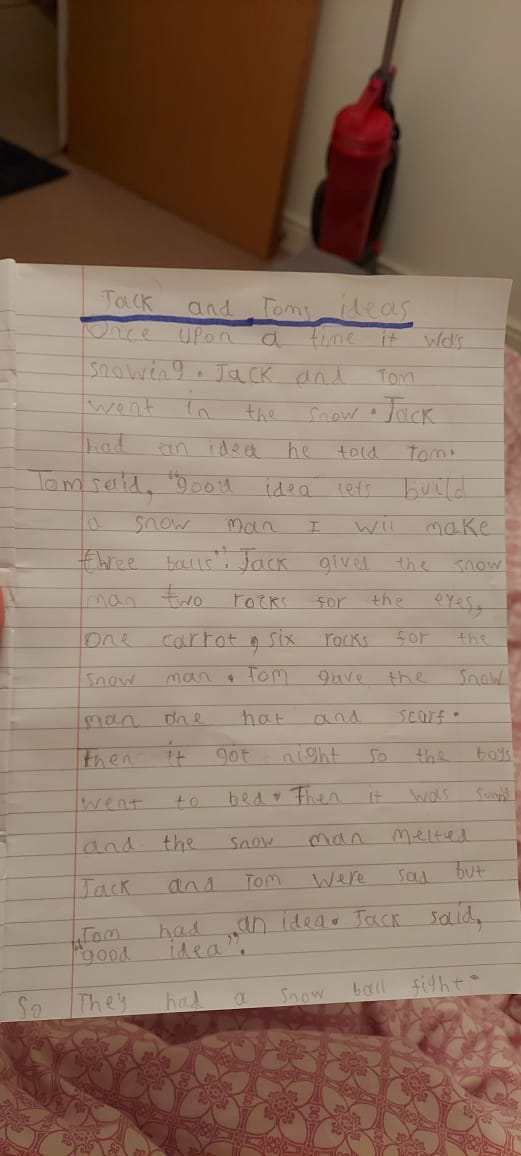 Jack and Toms ideas
Once upon a time it was
snowing. Jack and Tom
went in the snow. Jack
had an idea he told Tom.
Tom said, "good idea lets build
a snow man I wil make
three balls". Jack gived the snow
man two rocks for the eyes,
one carrot, six rocks for the
snow man. Tom gave the snow
man one hat and scarf.
then it got night so the boys
went to bed. Then it was sunny
and the snow man melted
Jack and Tom were sad but
Tom had an idea. Jack said,
"good idea".
So They had a snow ball fight.